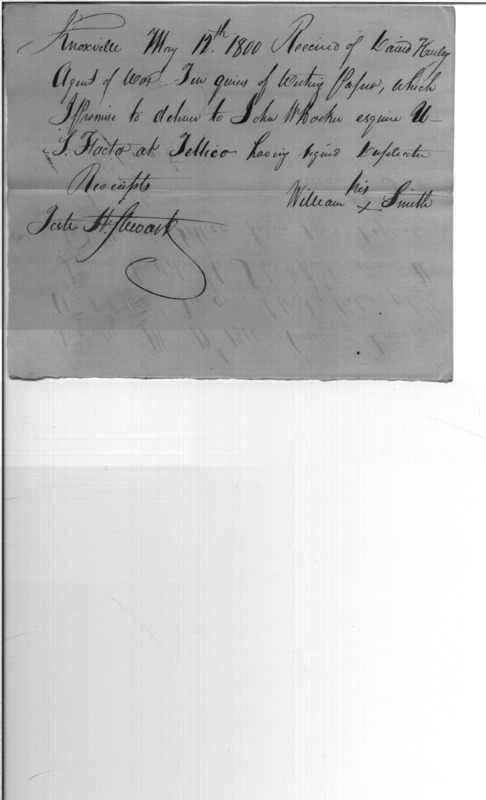 Knoxville May. 12th. 1800 Received of David Henley
Agent of War Ten quires of Writing Paper, which
I promise to deliver to John W Hooker esquire U
S. Factor at Tellico having signed Duplicate
Receipts
his
William x Smith
Teste H. Stewart